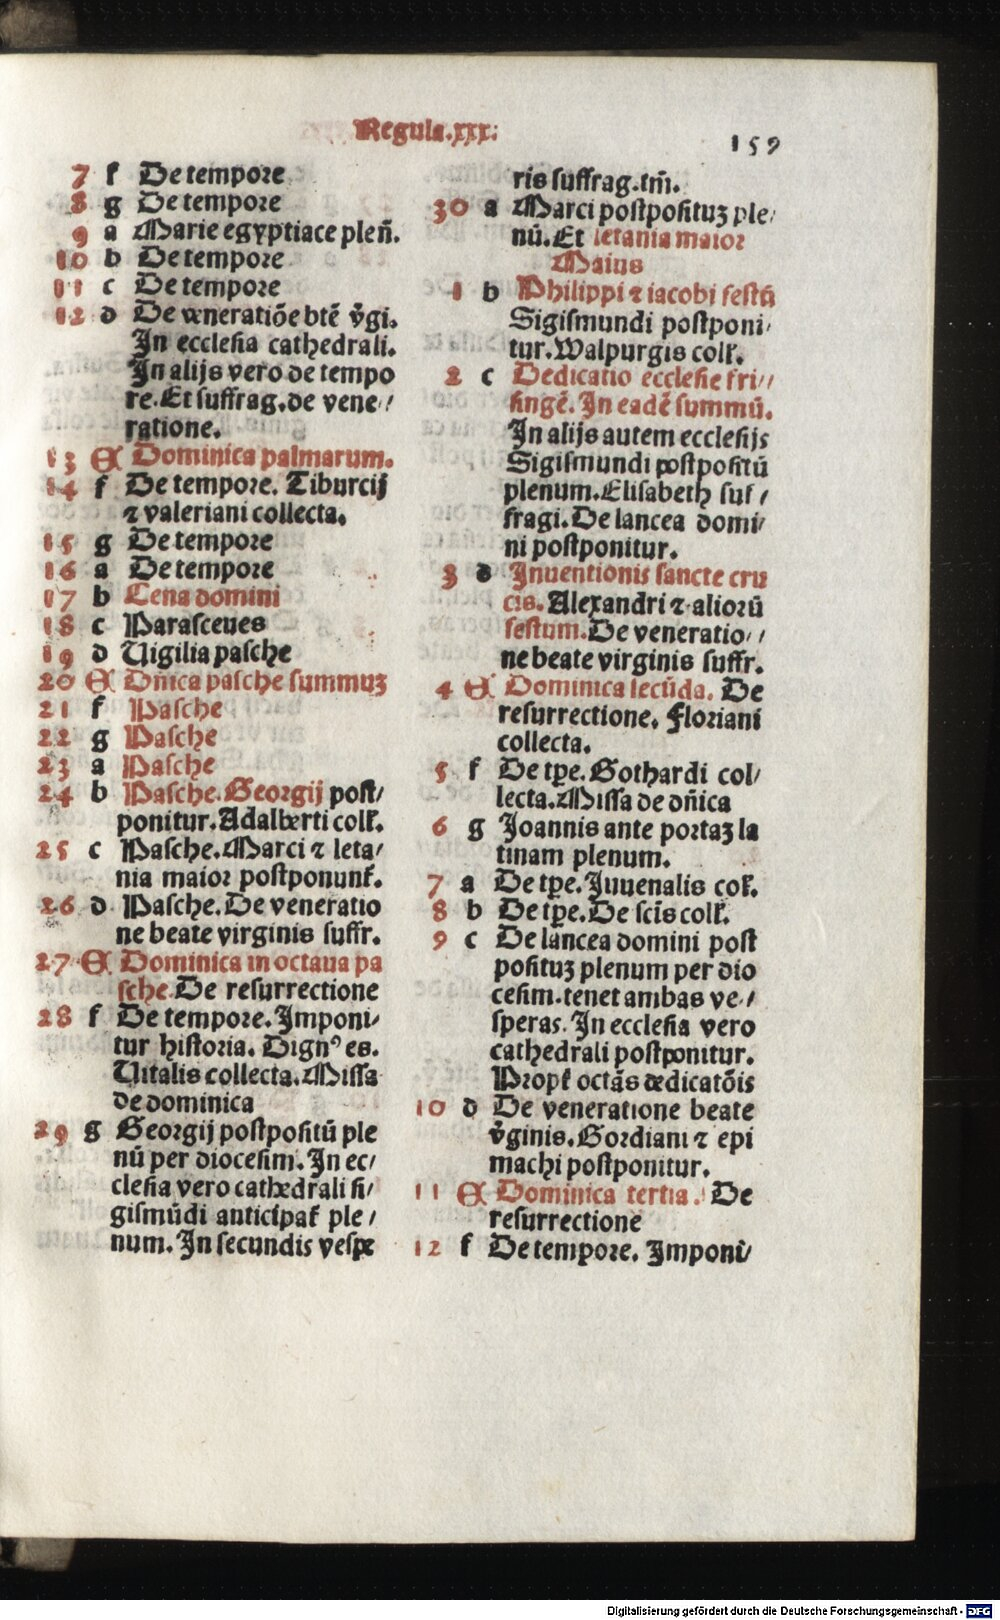 Regula.xxx:
159
7 f De tempore
8 g De tempore
9 a Marie egyptiace pleñ.
10 b De tempore
11 c De tempore
12 d De veneratiõe btẽ v̄gi.
In ecclesia cathedrali.
In alijs vero de tempo
re. Et suffrag. de vene⸗
ratione.
13 A Dominica palmarum.
14 f De tempore. Tiburcij
⁊ valeriani collecta.
15 g De tempore
16 a De tempore
17 b Cena domini
18 c Parasceues
19 d Vigilia pasche
20 A Dñica pasche summuʒ
21 f Pasche
22 g Pasche
23 a Pasche
24 b Pasche. Georgij post⸗
ponitur. Adalberti coll̃.
25 c Pasche. Marci ⁊ leta⸗
nia maior postponunt̃.
26 d Pasche. De veneratio
ne beate virginis suffr.
27 A Dominica in octaua pa
sche. De resurrectione
28 f De tempore. Imponi⸗
tur historia. Dignꝰ es.
Vitalis collecta. Missa
de dominica
29 g Georgij postpositũ ple
nũ per diocesim. In ec⸗
clesia vero cathedrali si⸗
gismũdi anticipat̃ ple⸗
num. In secundis vespe
ris suffrag. tm̃.
30 a Marci postpositus ple⸗
nũ. Et letania maior
Maius
1 b Philippi ⁊ iacobi festũ
Sigismundi postponi⸗
tur. Walpurgis coll̃.
2 c Dedicatio ecclesie fri⸗
singẽ. In eadẽ summũ.
In alijs autem ecclesijs
Sigismundi postpositũ
plenum. Elisabeth suf⸗
fragi. De lancea domi⸗
ni postponitur.
3 d Inuentionis sancte cru
cis. Alexandri ⁊ aliorũ
festum. De veneratio⸗
ne beate virginis suffr.
4 A Dominica secũda. De
resurrectione. Floriani
collecta.
5 f De tpe. Gothardi col⸗
lecta. Missa de dñica
6 g Joannis ante portaʒ la
tinam plenum.
7 a De tpe. Juuenalis col̃.
8 b De tpe. De scĩs coll̃.
9 c De lancea domini post
posituʒ plenum per dio
cesim. tenet ambas ve⸗
speras. In ecclesia vero
cathedrali postponitur.
Propt̃ octãs dedicatõis
10 d De veneratione beate
v̄ginis. Gordiani ⁊ epi
machi postponitur.
11 A Dominica tertia. De
resurrectione
12 f De tempore. Imponi⸗
Digitalisierung gefördert durch die Deutsche Forschungsgemeinschaft - DFG